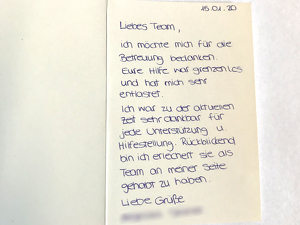 15.01.20
Liebes Team,
ich möchte mich für die
Betreuung bedanken.
Eure Hilfe war grenzenlos
und hat mich sehr
entlastet.
Ich war zu der aktuellen
Zeit sehr dankbar für
jede Unterstützung u
Hilfestellung. Rückblickend
bin ich erleichert sie als
Team an meiner Seite
gehabt zu haben.
Liebe Grüße